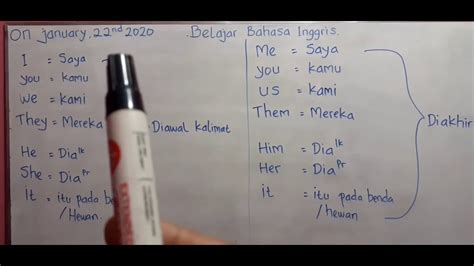 On january, 22nd 2020
Belajar Bahasa Inggris.
I = Saya
you = kamu
we = kami
They = Mereka
Diawal kalimat
He = Dia lk
She = Dia Pr
It = itu pada benda
/Hewan.
Me = Saya
you = kamu
us = kami
Them = Mereka
Him = Dia lk
Her = Dia Pr
it = itu pada benda
/hewan
Diakhir